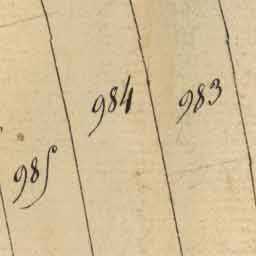 985
984
983